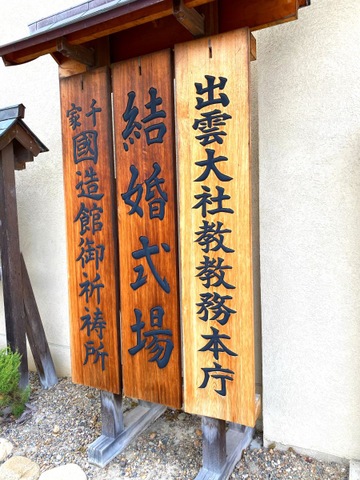 出雲大社教教務本庁
結婚式場
千家國造館御祈祷所